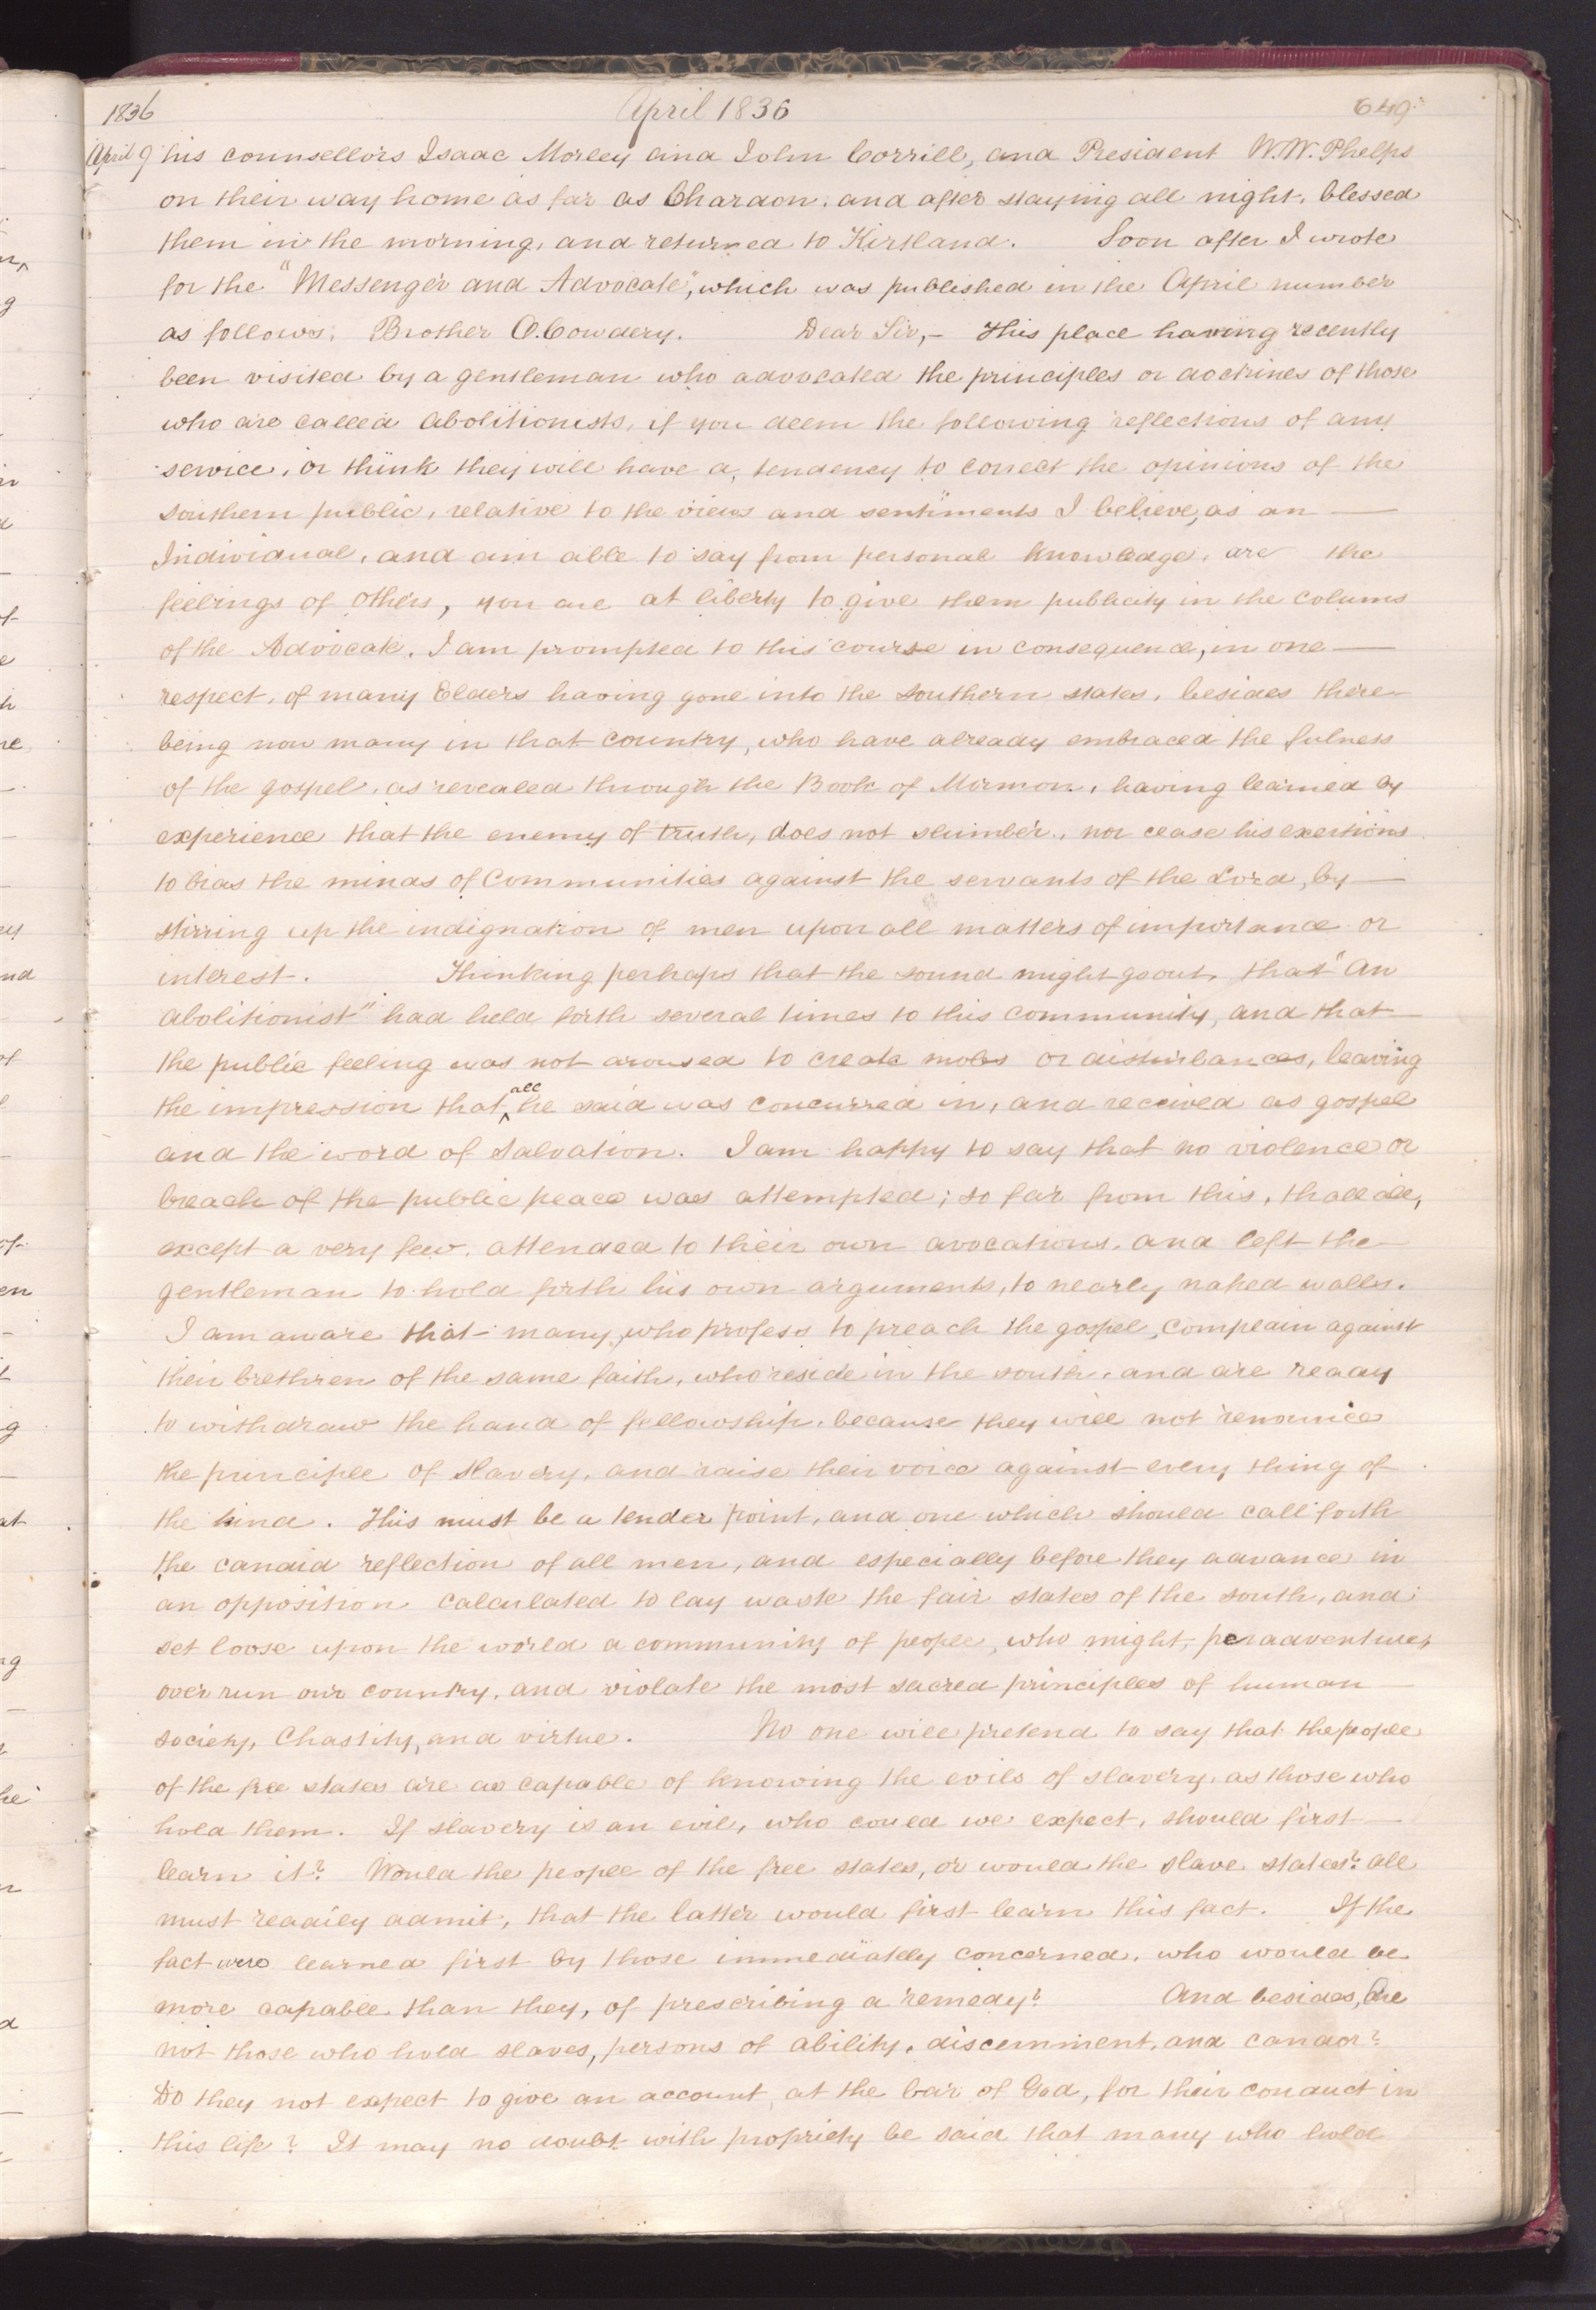 1836 April 1836 649
April 9 his counsellors Isaac Morley and John Corrill, and President W.W. Phelps
on their way home as far as Chardon, and after staying all night, blessed
them in the morning, and returned to Kirtland. Soon after I wrote
for the "Messenger and Advocate", which was published in the April number
as follows; Brother O. Cowdery. Dear Sir,— This place having recently
been visited by a gentleman who advocated the principles or doctrines of those
who are called abolitionists, if you deem the following reflections of any
service, or think they will have a tendency to correct the opinions of the
southern public, relative to the views and sentiments I believe, as an —
Individual, and am able to say from personal knowledge, are the
feelings of others, you are at liberty to give them publicity in the colums
of the Advocate. I am prompted to this course in consequence, in one —
respect, of many Elders having gone into the southern states, besides there
being now many in that country, who have already embraced the fulness
of the gospel, as revealed through the Book of Mormon, having learned by
experience that the enemy of truth, does not slumber, nor cease his exertions
to bias the minds of Communities against the servants of the Lord, by —
stirring up the indignation of men upon all matters of importance or
interest. Thinking perhaps that the sound might go out, that "An
abolitionist" had held forth several times to this community, and that
the public feeling was not aroused to create mobs or disturbances, leaving
the impression that ^all he said was concurred in, and received as gospel
and the word of salvation. I am happy to say that no violence or
breach of the public peace was attempted; so far from this, that all,
except a very few, attended to their own avocations, and left the
gentleman to hold forth his own arguments, to nearly naked walls.
I am aware that many, who profess to preach the gospel, complain against
their brethren of the same faith, who reside in the south, and are ready
to withdraw the hand of fellowship, because they will not renounce
the principle of slavery, and raise their voice against every thing of
the kind. This must be a tender point, and one which should call forth
the candid reflection of all men, and especially before they advance in
an opposition calculated to lay waste the fair states of the south, and
set loose upon the world a community of people, who might, peradventure,
over run our country, and violate the most sacred principles of human
society, Chastity, and virtue. No one will pretend to say that the people
of the free states are as capable of knowing the evils of slavery, as those who
hold them. If slavery is an evil, who could we expect, should first —
learn it? Would the people of the free states, or would the slave states? all
must readily admit, that the latter would first learn this fact. If the
fact were learned first by those immediately concerned, who would be
more capable than they, of prescribing a remedy? And besides, Are
not those who hold slaves, persons of ability, discernment, and candor?
Do they not expect to give an account at the bar of God, for their conduct in
this life? It may no doubt with propriety be said that many who hold